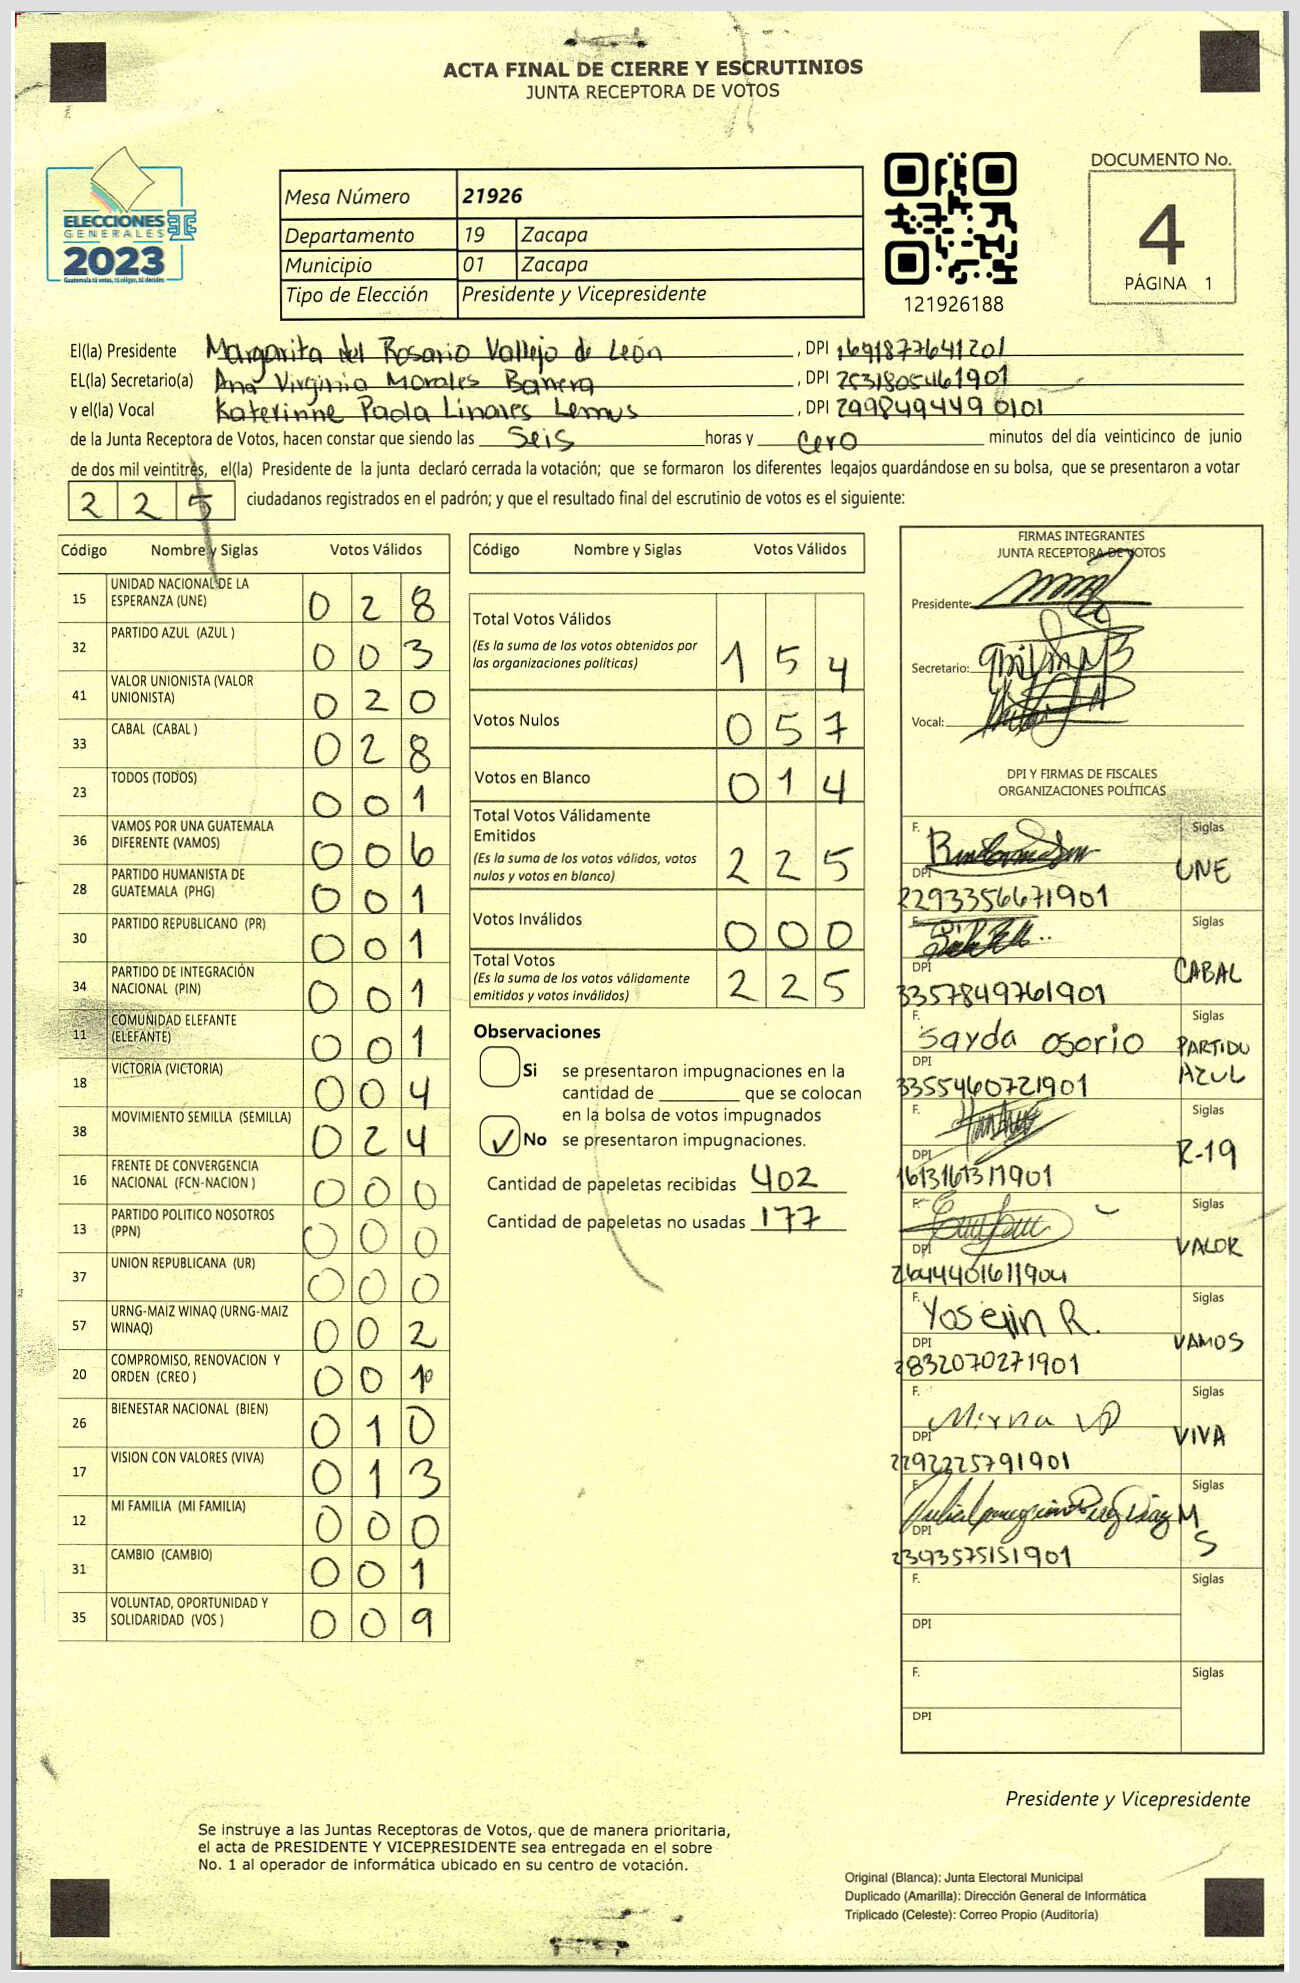 ACTA FINAL DE CIERRE Y ESCRUTINIOS
JUNTA RECEPTORA DE VOTOS
ELECCIONES
GENERALES
2023
Guatemala tú votas, tú eliges, tú decides
Mesa Número 21926
Departamento 19 Zacapa
Municipio 01 Zacapa
Tipo de Elección Presidente y Vicepresidente
121926188
DOCUMENTO No.
4
PÁGINA 1
El(la) Presidente Margarita del Rosario Vallejo de León, DPI 1691877641201
EL(la) Secretario(a) Ana Virginia Morales Barrera, DPI 2531805461901
y el(la) Vocal Katerinne Paola Linares Lemus, DPI 2998494490101
de la Junta Receptora de Votos, hacen constar que siendo las Seis horas y Cero minutos del día veinticinco de junio
de dos mil veintitrés, el(la) Presidente de la junta declaró cerrada la votación; que se formaron los diferentes legajos guardándose en su bolsa, que se presentaron a votar
225 ciudadanos registrados en el padrón; y que el resultado final del escrutinio de votos es el siguiente:
Código Nombre y Siglas Votos Válidos
15 UNIDAD NACIONAL DE LA ESPERANZA (UNE) 028
32 PARTIDO AZUL (AZUL ) 003
41 VALOR UNIONISTA (VALOR UNIONISTA) 020
33 CABAL (CABAL ) 028
23 TODOS (TODOS) 001
36 VAMOS POR UNA GUATEMALA DIFERENTE (VAMOS) 006
28 PARTIDO HUMANISTA DE GUATEMALA (PHG) 001
30 PARTIDO REPUBLICANO (PR) 001
34 PARTIDO DE INTEGRACIÓN NACIONAL (PIN) 001
11 COMUNIDAD ELEFANTE (ELEFANTE) 001
18 VICTORIA (VICTORIA) 004
38 MOVIMIENTO SEMILLA (SEMILLA) 024
16 FRENTE DE CONVERGENCIA NACIONAL (FCN-NACION ) 000
13 PARTIDO POLITICO NOSOTROS (PPN) 000
37 UNION REPUBLICANA (UR) 000
57 URNG-MAIZ WINAQ (URNG-MAIZ WINAQ) 002
20 COMPROMISO, RENOVACION Y ORDEN (CREO ) 001
26 BIENESTAR NACIONAL (BIEN) 010
17 VISION CON VALORES (VIVA) 013
12 MI FAMILIA (MI FAMILIA) 000
31 CAMBIO (CAMBIO) 001
35 VOLUNTAD, OPORTUNIDAD Y SOLIDARIDAD (VOS ) 009
Código Nombre y Siglas Votos Válidos
Total Votos Válidos
(Es la suma de los votos obtenidos por
las organizaciones políticas) 154
Votos Nulos 057
Votos en Blanco 014
Total Votos Válidamente
Emitidos
(Es la suma de los votos válidos, votos
nulos y votos en blanco) 225
Votos Inválidos 000
Total Votos
(Es la suma de los votos válidamente
emitidos y votos inválidos) 225
Observaciones
Si se presentaron impugnaciones en la
cantidad de ________ que se colocan
en la bolsa de votos impugnados
No se presentaron impugnaciones.
Cantidad de papeletas recibidas 402
Cantidad de papeletas no usadas 177
FIRMAS INTEGRANTES
JUNTA RECEPTORA DE VOTOS
Presidente:
Secretario:
Vocal:
DPI Y FIRMAS DE FISCALES
ORGANIZACIONES POLÍTICAS
F. Siglas
DPI UNE
2293356671901
F. Siglas
DPI CABAL
3357849761901
F. Sayda Osorio Siglas
DPI PARTIDO AZUL
3355460721901
F. Siglas
DPI R-19
F. Siglas
DPI VALOR
2644401611904
F. Yoselin R. Siglas
DPI VAMOS
2832070271901
F. Mirna Siglas
DPI VIVA
2292225791901
F. Siglas
DPI MS
2393575151901
F. Siglas
DPI
F. Siglas
DPI
Presidente y Vicepresidente
Se instruye a las Juntas Receptoras de Votos, que de manera prioritaria,
el acta de PRESIDENTE Y VICEPRESIDENTE sea entregada en el sobre
No. 1 al operador de informática ubicado en su centro de votación.
Original (Blanca): Junta Electoral Municipal
Duplicado (Amarilla): Dirección General de Informática
Triplicado (Celeste): Correo Propio (Auditoría)